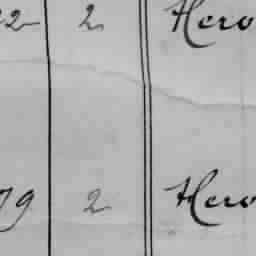 22 2 Hero
79 2 Hero